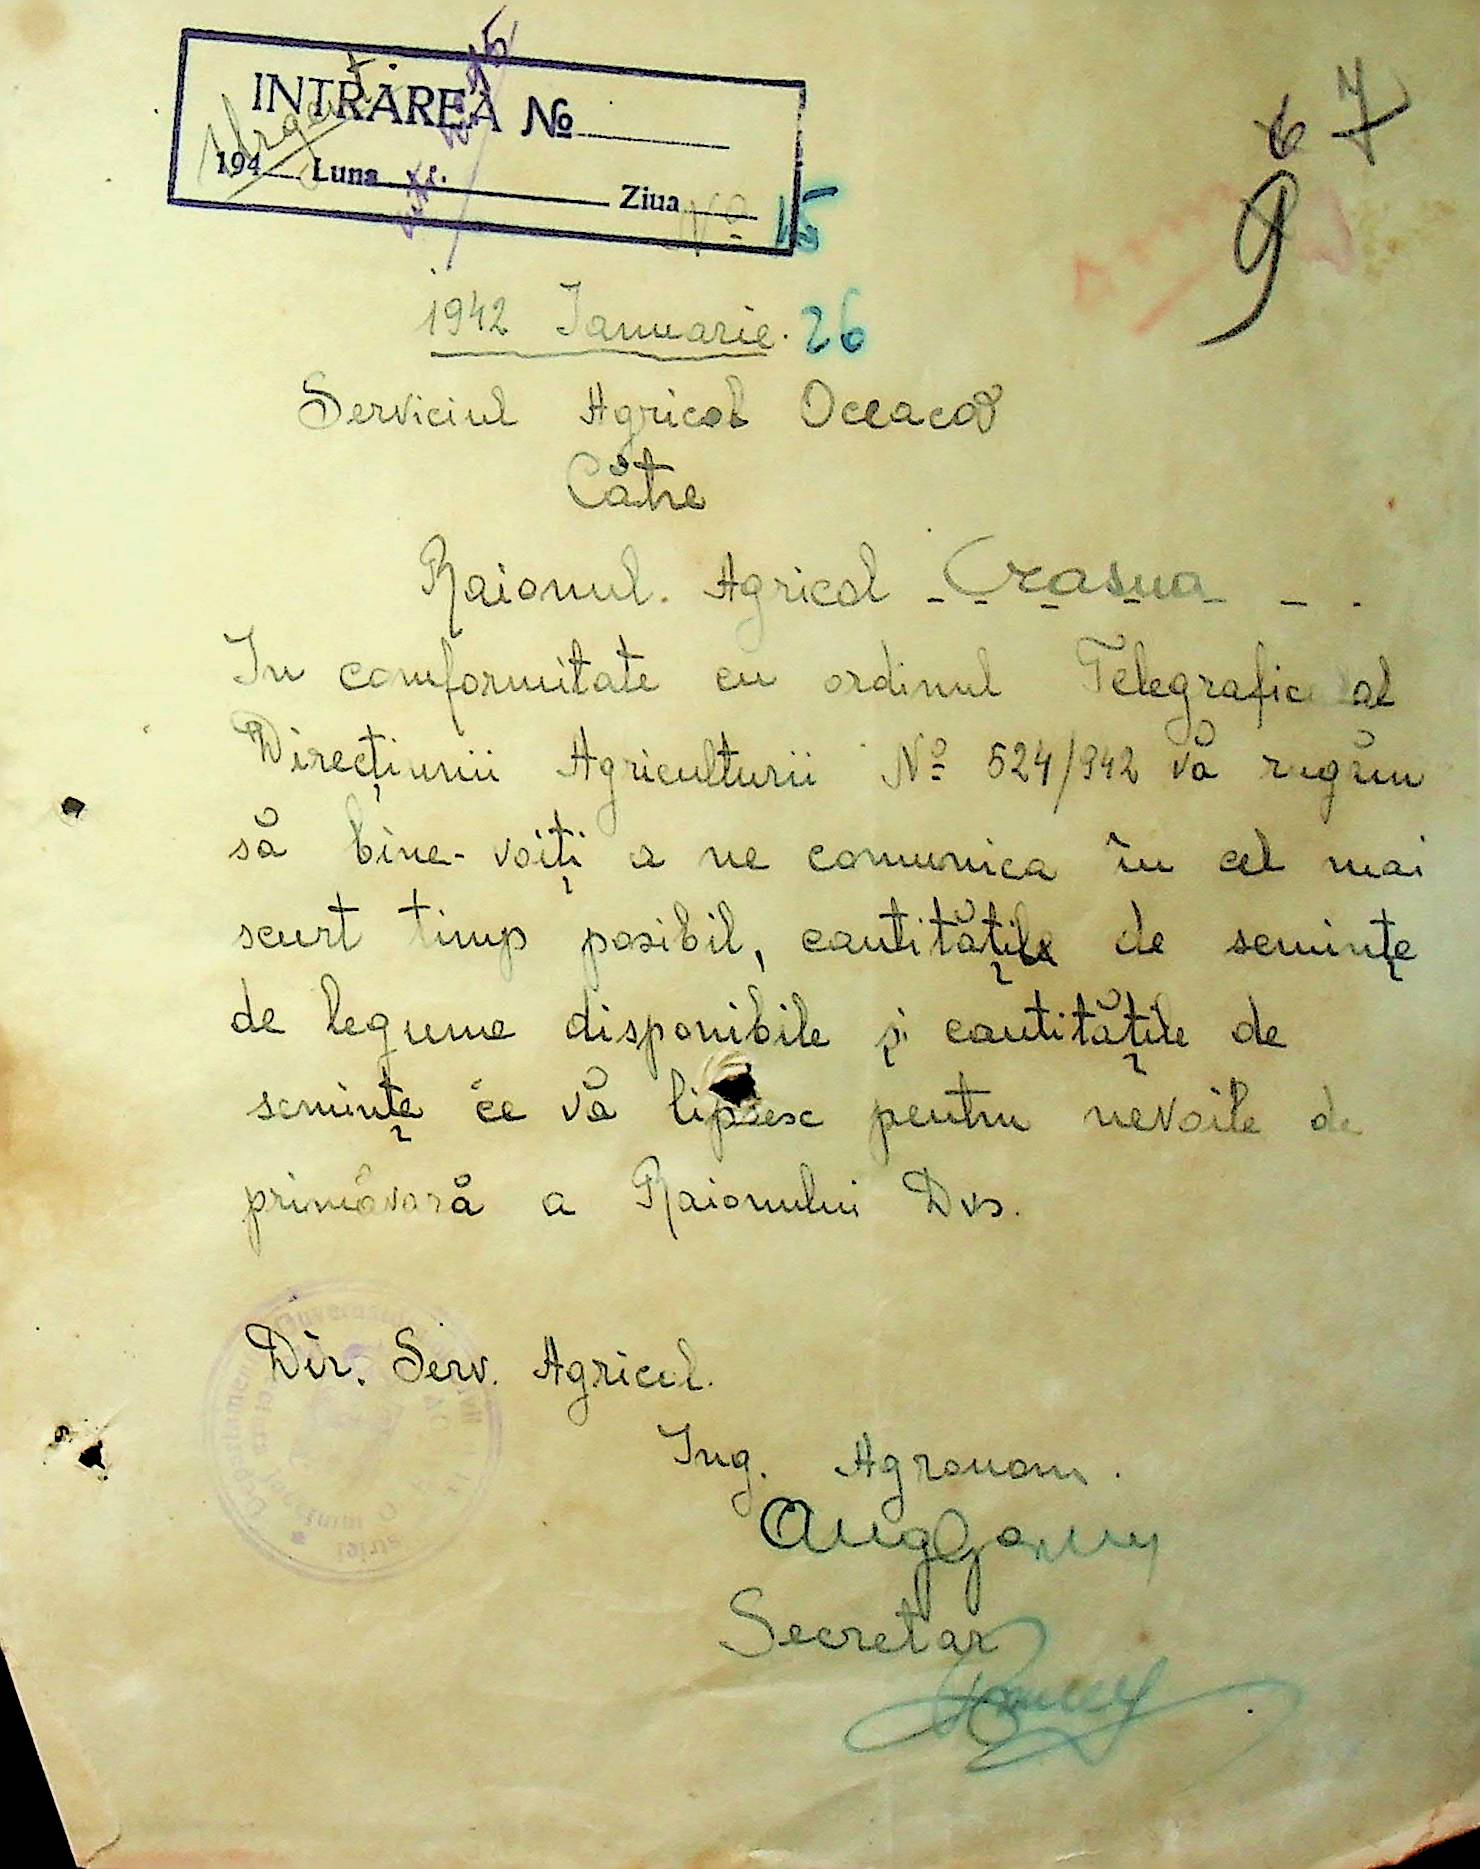 INTRAREA №
194 Luna Ziua
Urgent
№ 15
6 7
9
1942 Ianuarie. 26
Serviciul Agricol Oceacov
Către
Raionul. Agricol - Crasna - - .
In comformitate cu ordinul Telegrafic al
Direcțiunii Agriculturii № 524/942 vă rugăm
să bine-voiți a ne comunica în cel mai
scurt timp posibil, cantitățile de seminţe
de legume disponibile și cantitățile de
seminţe ce vă lipsesc pentru nevoile de
primăvară a Raionului Dvs.
Dir. Serv. Agricol.
Ing. Agronom.
Secretar